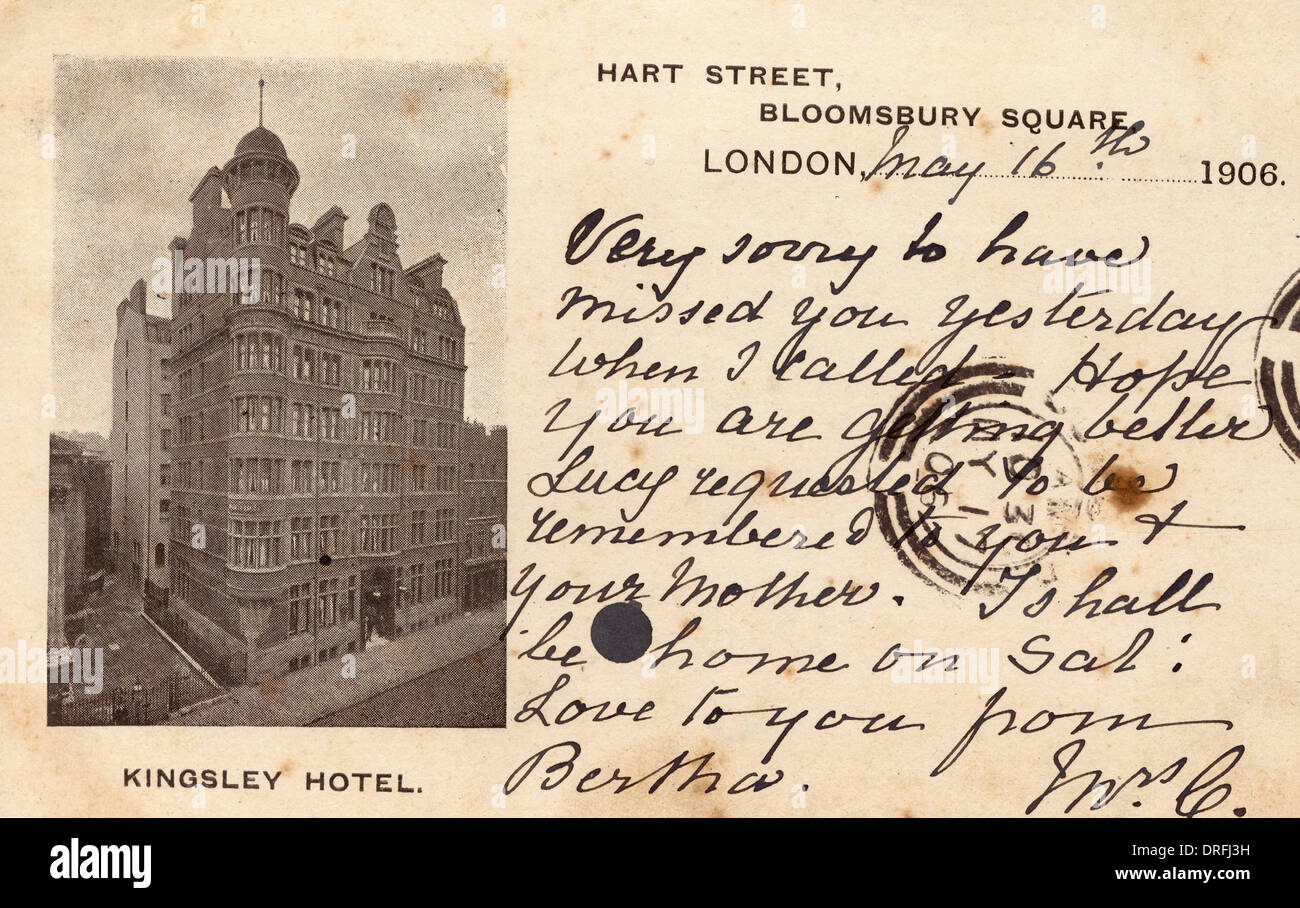 HART STREET,
BLOOMSBURY SQUARE,
LONDON, May 16th 1906.
Very sorry to have
missed you yesterday
when I called – Hope
you are getting better
Lucy requested to be
remembered to you +
your Mother. I shall
be home on Sat:
Love to you from
Bertha. Mrs C.
KINGSLEY HOTEL.
alamy
alamy
a
a
a
a
alamy
Image ID: DRFJ3H
www.alamy.com